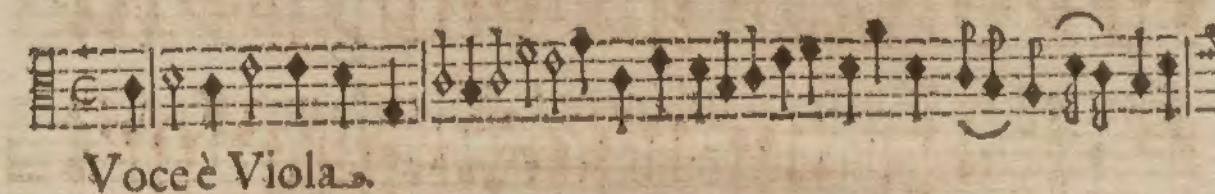 Voce è Viola.